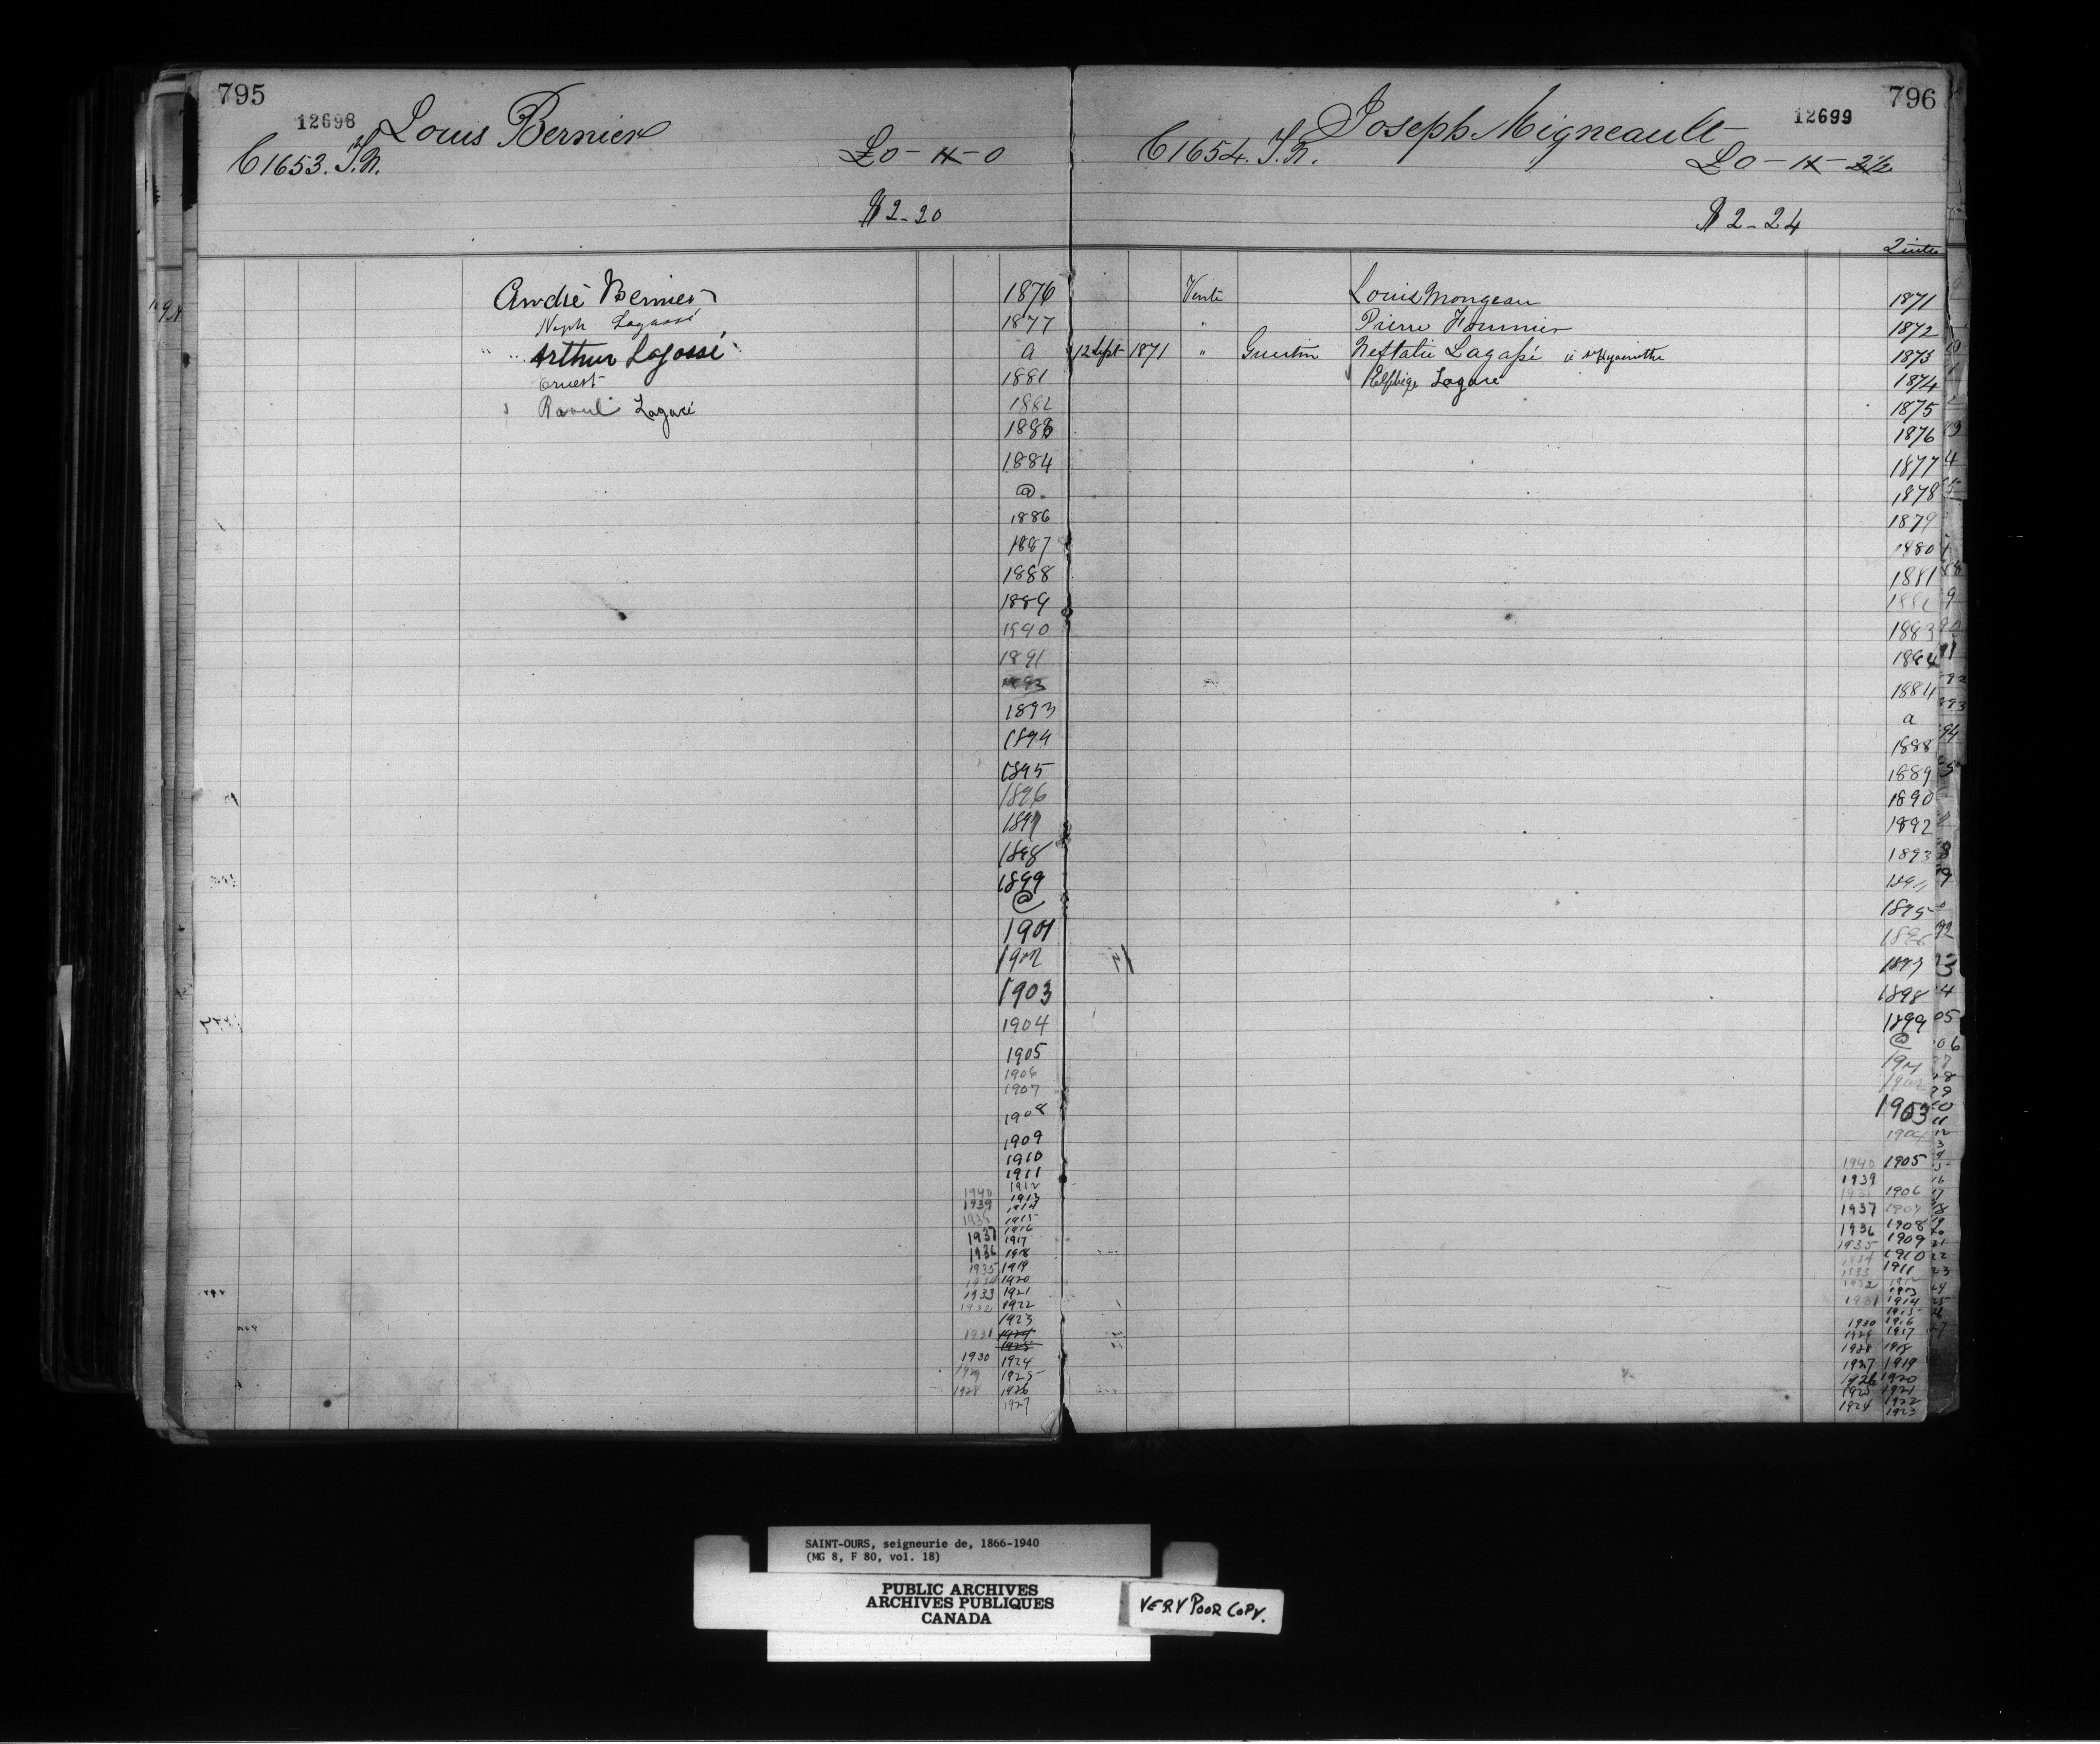 795
12698 Louis Bernier
C1653. T.N. £0 - 11 - 0
$2-20
André Bernier 1876
Neph Lagassé 1877
" " Arthur Lagassé a
Ernest 1881
Raoul Lagacé 1882
1883
1884
@.
1886
1887
1888
1889
1890
1891
1893
1894
1895
1896
1897
1898
1899
@
1901
1902
1903
1904
1905
1906
1907
1908
1909
1910
1911
1912
1940 1913
1939 1914
1938 1915
1916
1937 1917
1936 1918
1935 1919
1934 1920
1933 1921
1932 1922
1923
1931 1924
1925
1930 1924
1929 1925
1928 1926
1927
796
Joseph Migneault 12699
C1654. T.N. £0 - 11 - 2½
$2-24
Vente Louis Mongeau 1871
" Pierre Fournier 1872
12 Sept 1871 " Guertin Neftalie Lagassé à St Hyacinthe 1873
Elphège Lagacé 1874
1875
1876
1877
1878
1879
1880
1881
1882
1883
1884
1884
a
1888
1889
1890
1892
1893
1894
1895
1896
1897
1898
1899
@
1901
1902
1903
1904
1940 1905
1939
1938 1906
1937 1907
1936 1908
1935 1909
1934 1910
1933 1911
1932 1912
1913
1931 1914
1915
1930 1916
1929 1917
1928 1918
1927 1919
1926 1920
1925 1921
1924 1922
1923
SAINT-OURS, seigneurie de, 1866-1940
(MG 8, F 80, vol. 18)
PUBLIC ARCHIVES
ARCHIVES PUBLIQUES
CANADA
VERY POOR COPY.